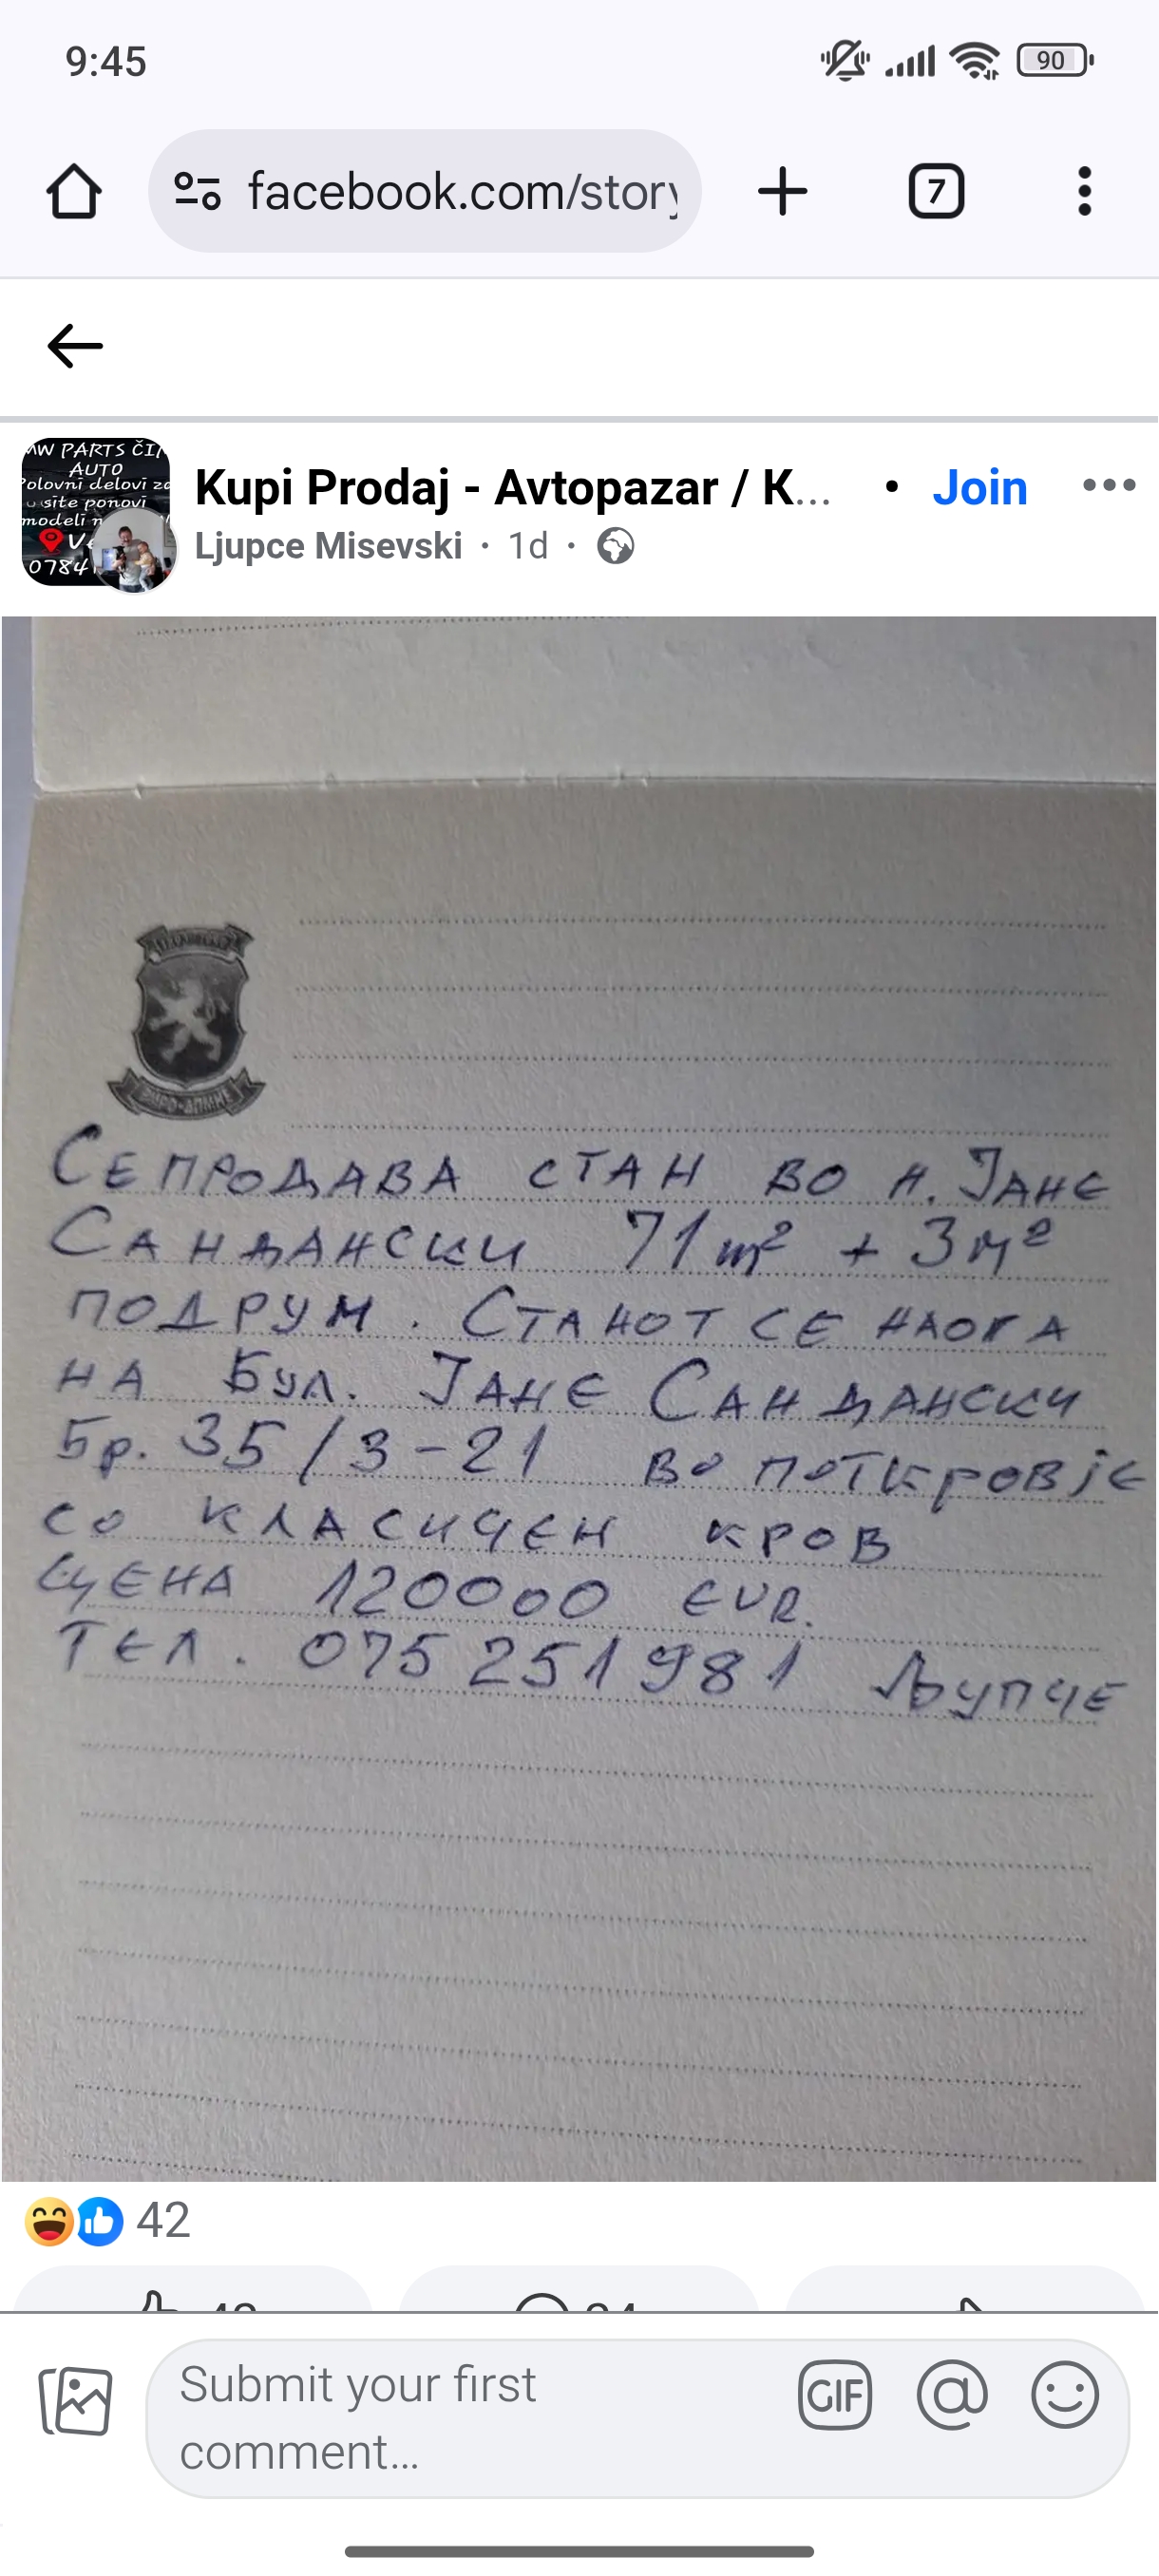 9:45
90
facebook.com/story
7
MW PARTS ČI
AUTO
Polovni delovi za
site ponovi
modeli
0784
Kupi Prodaj - Avtopazar / K... • Join
Ljupce Misevski · 1d ·
ВМРО-ДПМНЕ
СЕ ПРОДАВА СТАН ВО Н. ЈАНЕ
САНДАНСКИ 71 m² + 3 м²
ПОДРУМ. СТАНОТ СЕ НАОЃА
НА БУЛ. ЈАНЕ САНДАНСКИ
БР. 35/3-21 ВО ПОТКРОВЈЕ
СО КЛАСИЧЕН КРОВ
ЦЕНА 120000 EUR.
ТЕЛ. 075 251 981 ЉУПЧЕ
42
Submit your first
comment...
GIF